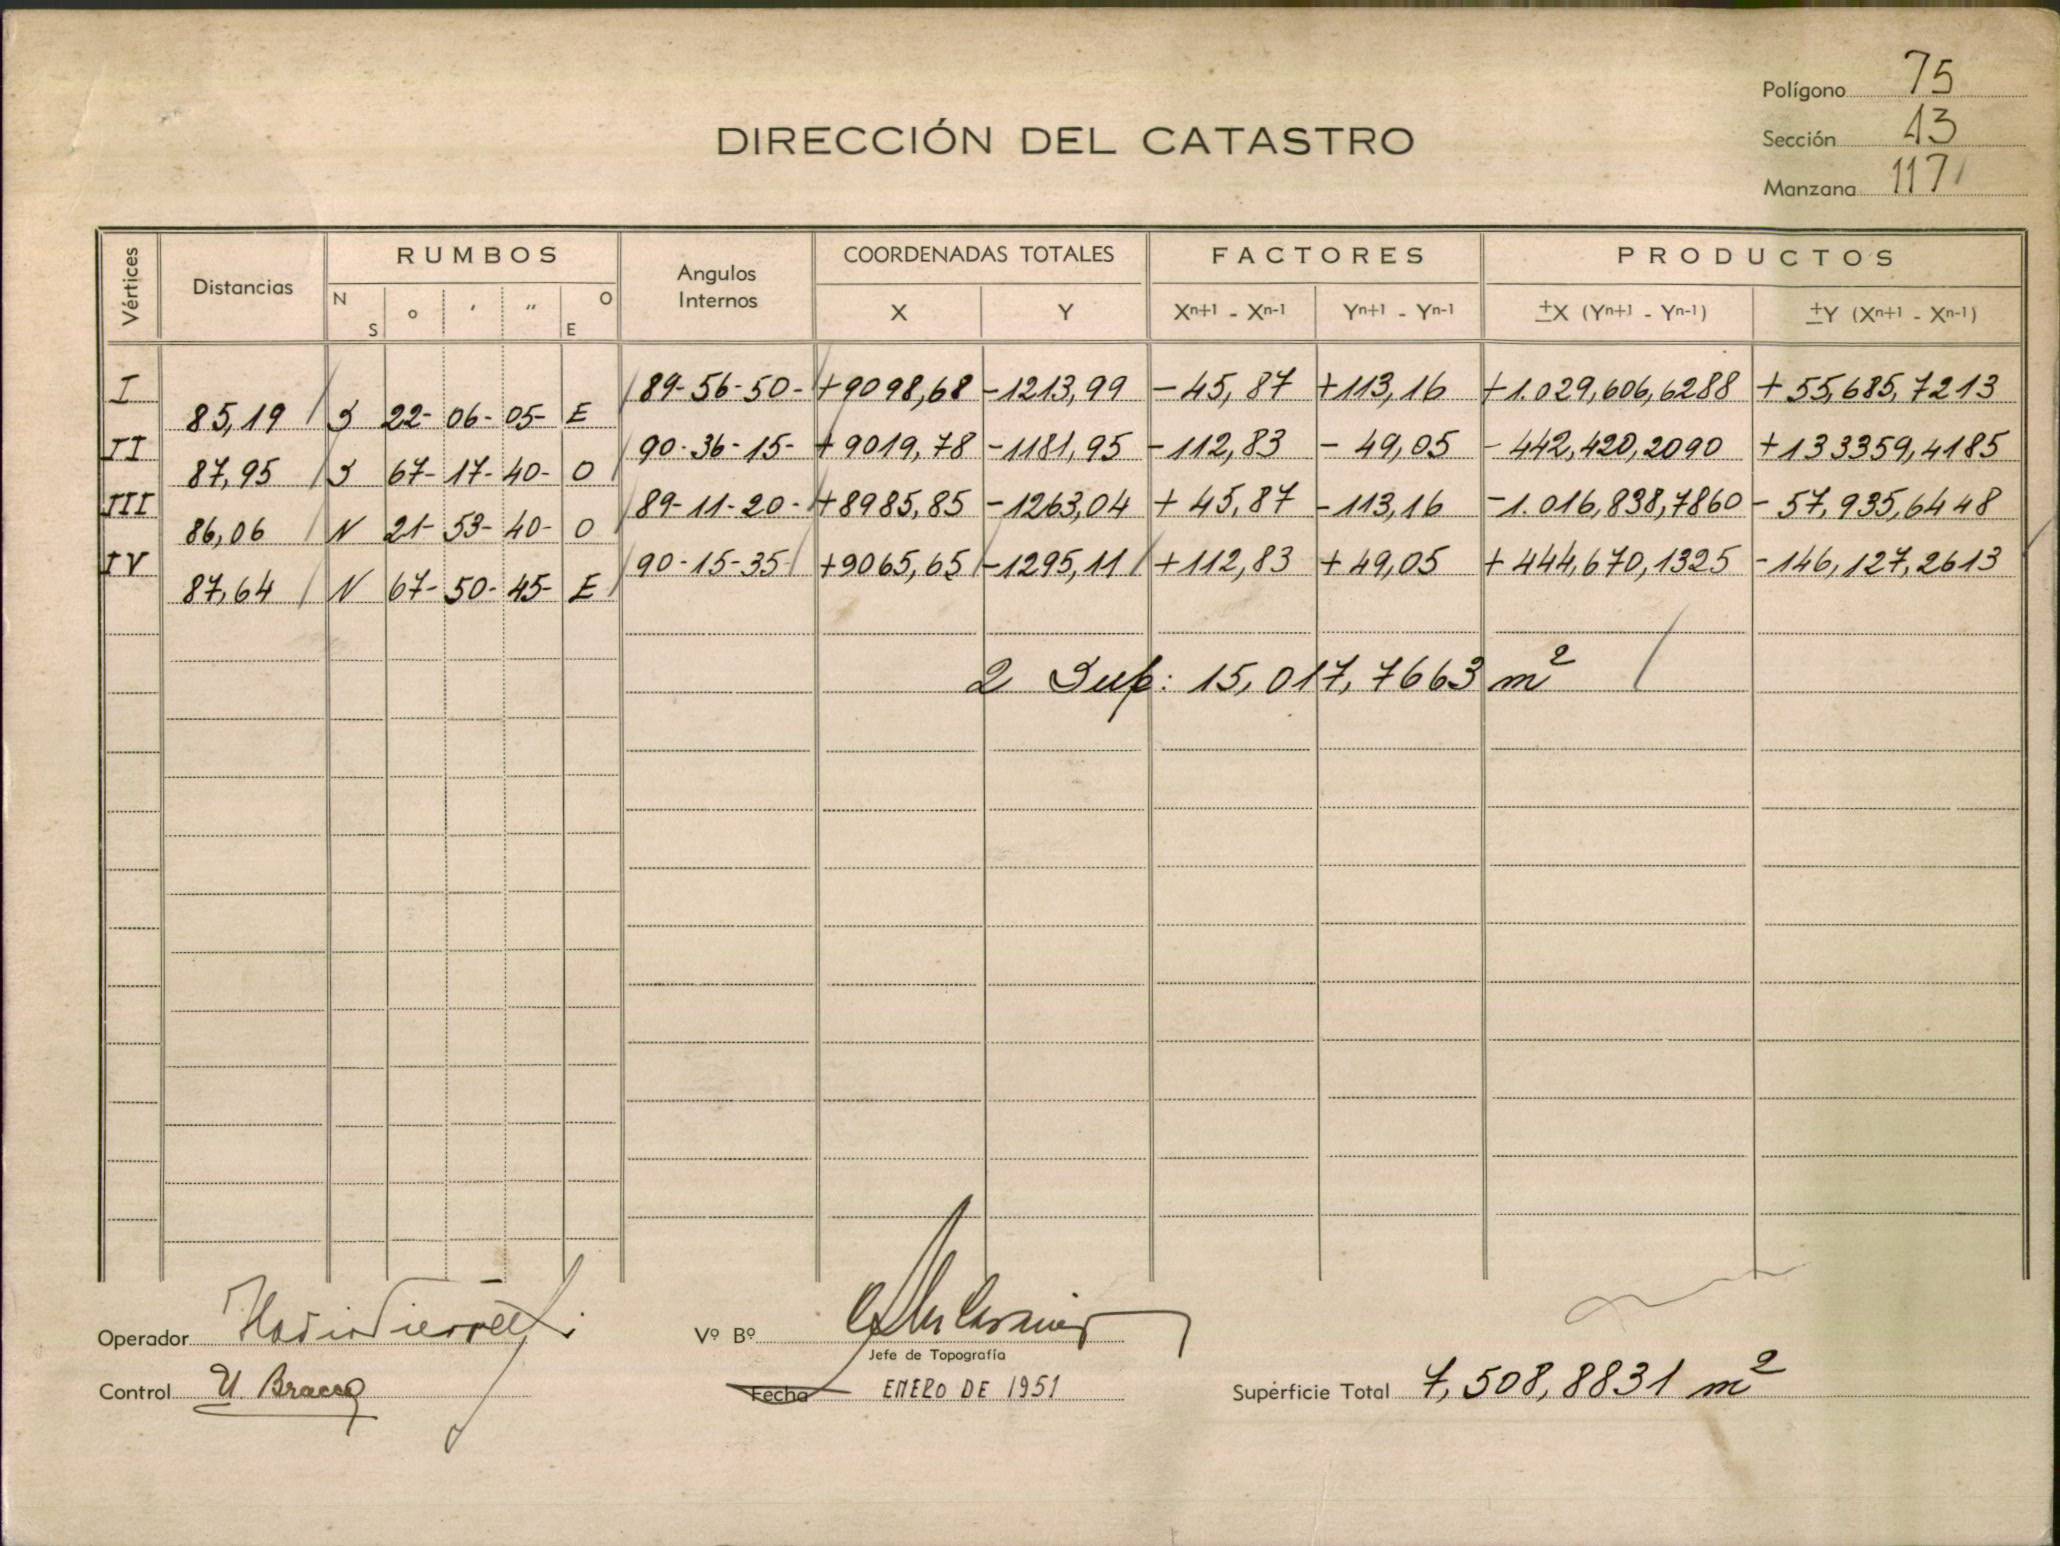 Polígono 75
Sección 13
Manzana 117
DIRECCIÓN DEL CATASTRO
Vértices Distancias RUMBOS Angulos Internos COORDENADAS TOTALES FACTORES PRODUCTOS
N S ° ′ ″ O E X Y Xn+1 - Xn-1 Yn+1 - Yn-1 ±X (Yn+1 - Yn-1) ±Y (Xn+1 - Xn-1)
I 89-56-50- +9098,68 -1213,99 -45,87 +113,16 +1.029,606,6288 +55,685,7213
85,19 S 22- 06- 05- E
II 90-36-15- +9019,78 -1181,95 -112,83 -49,05 -442,420,2090 +133359,4185
87,95 S 67- 17- 40- O
III 89-11-20- +8985,85 -1263,04 +45,87 -113,16 -1.016,838,7860 -57,935,6448
86,06 N 21- 53- 40- O
IV 90-15-35- +9065,65 -1295,11 +112,83 +49,05 +444,670,1325 -146,127,2613
87,64 N 67- 50- 45- E
2 Sup: 15,017,7663 m²
Operador
Vº Bº
Jefe de Topografía
Control U. Bracco
Fecha ENERO DE 1951
Superficie Total 7,508,8831 m²